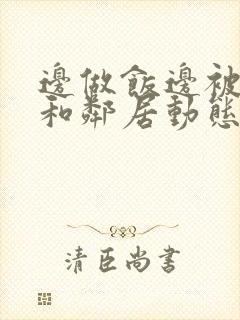 邊做飯邊被
和鄰居動態
清臣尚書